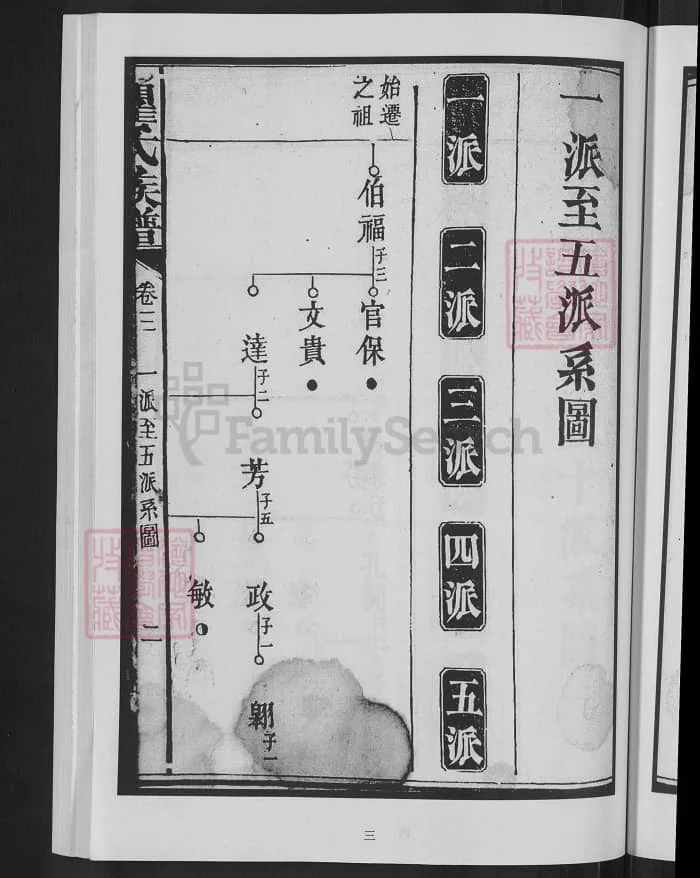 一派至五派系圖
一派
二派
三派
四派
五派
始遷
之祖
伯福
子三
官保
文貴
達
子二
芳
子五
政
子一
翱
子一
敏
氏族譜
卷三
一派至五派系圖
二
三
FamilySearch